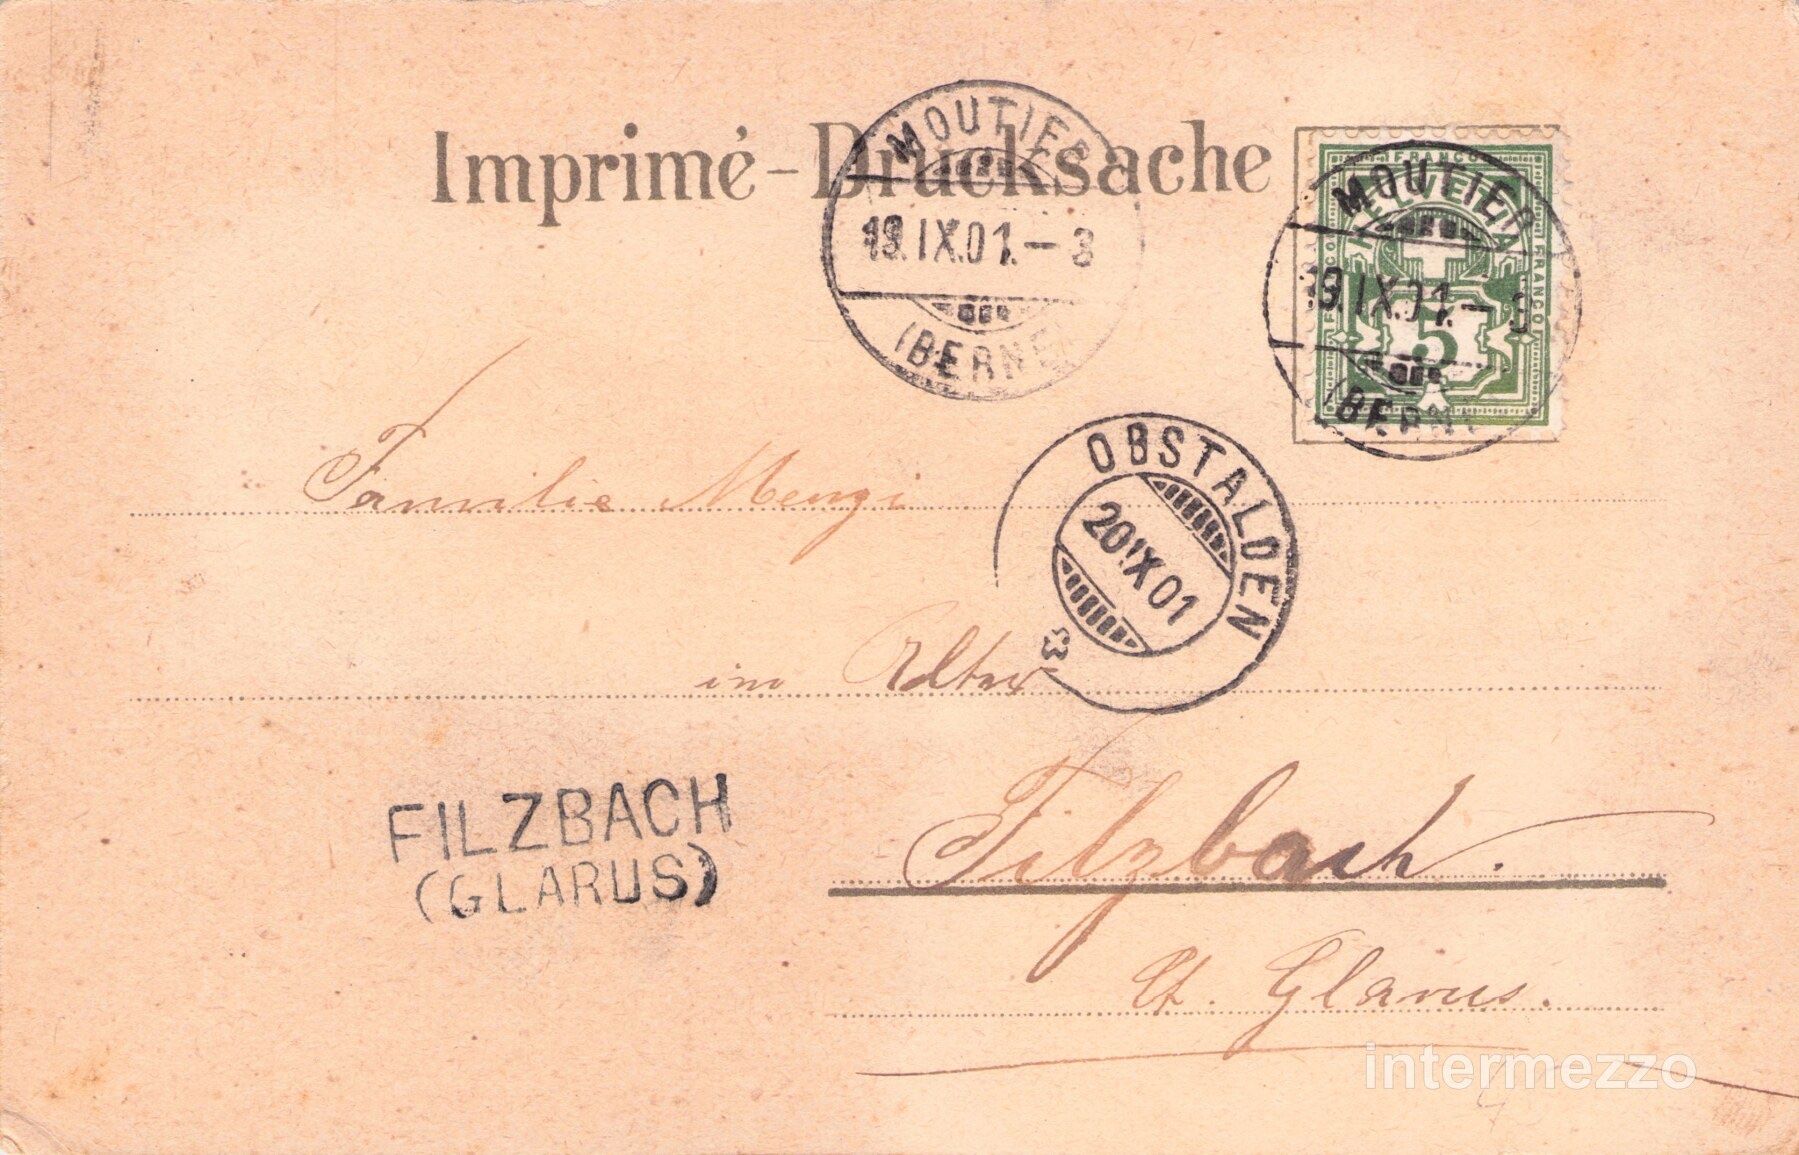 Imprimé-Drucksache
MOUTIER
19.IX.01.-3
(BERNE)
FRANCO
HELVETIA
FRANCO
FRANCO
5
MOUTIER
19.IX.01.-3
(BERNE)
Familie Menzi
OBSTALDEN
20.IX.01
im
FILZBACH
(GLARUS)
Filzbach.
Ct. Glarus.
intermezzo